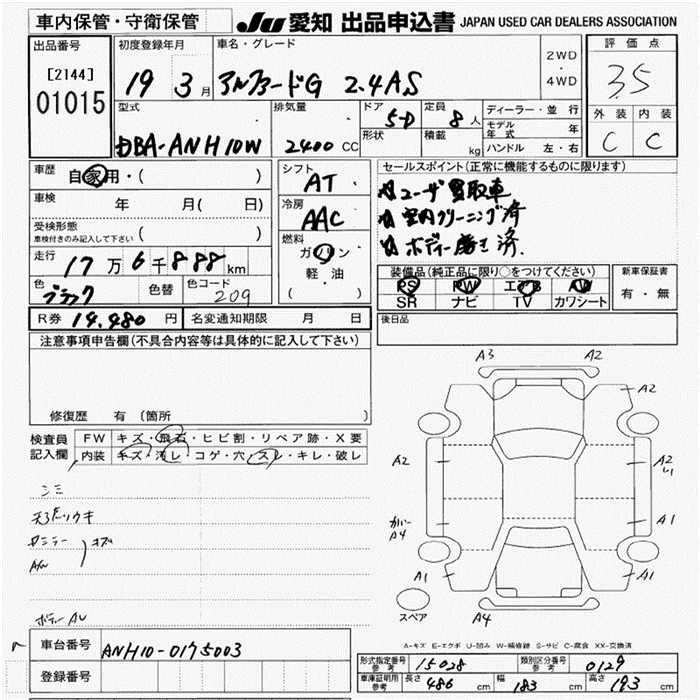 車内保管・守衛保管
JU 愛知 出品申込書 JAPAN USED CAR DEALERS ASSOCIATION
出品番号
[2144]
01015
初度登録年月
19 3 月
車名・グレード
アルファードG 2.4AS
2WD
・
4WD
評価点
35
外装 内装
C C
型式
DBA-ANH10W
排気量
2400 CC
ドア
5-D
定員
8 人
形状
積載
kg
ディーラー・並行
モデル年式 年
ハンドル 左・右
車歴
自家用・( )
車検
年 月( 日)
受検形態
車検付きのみ記入して下さい ( )
走行
17万6千888km
色
ブラック
色替
色コード
209
シフト
AT
冷房
AAC
燃料
ガソリン
軽・油
( )
セールスポイント(正常に機能するものに限ります)
ユーザー買取車
室内クリーニング済
ボディー磨き済.
装備品(純正品に限り○をつけてください)
PS PW エアB AW
SR ナビ TV カワシート
新車保証書
有・無
R券 14,480 円
名変通知期限 月 日
後日品
注意事項申告欄(不具合内容等は具体的に記入して下さい)
修復歴 有〔箇所 〕
検査員
記入欄
FW キズ・飛石・ヒビ割・リペア跡・X要
内装 キズ・汚レ・コゲ・穴・スレ・キレ・破レ
シミ
天張リウキ
カラー
A/W
ボディーAU
A3 A2
A2
A2
A2
A1
カバー
A4
A1
A1
A4
スペア
車台番号 ANH10-0175003
登録番号
A-キズ E-エクボ U-凹み W-補修跡 S-サビ C-腐食 XX-交換済
形式指定番号
参考
15028
類別区分番号
参考
0129
車庫証明用
参考
長さ 486 cm
幅 183 cm
高さ 193 cm